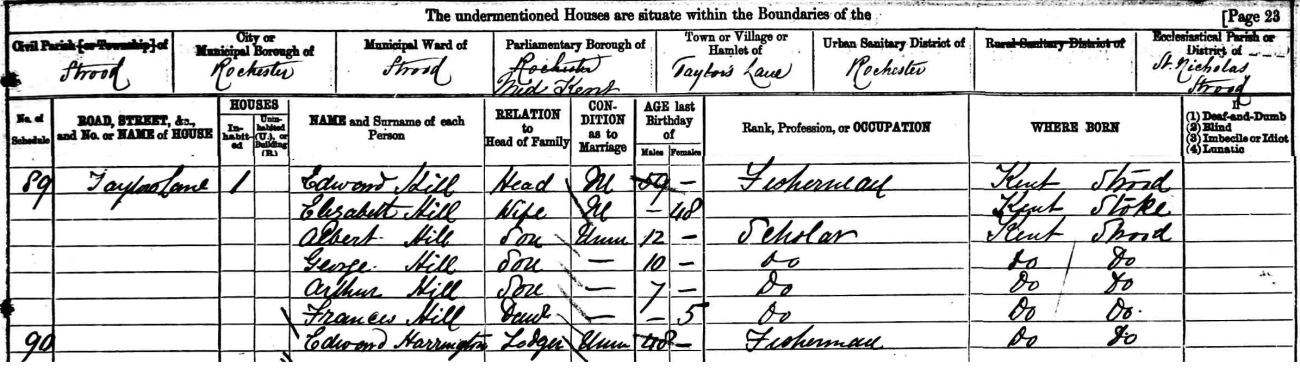 The undermentioned Houses are situate within the Boundaries of the [Page 23
Civil Parish [or Township] of City or Municipal Borough of Municipal Ward of Parliamentary Borough of Town or Village or Hamlet of Urban Sanitary District of Rural Sanitary District of Ecclesiastical Parish or District of
Strood Rochester Strood Rochester Mid Kent Taylors Lane Rochester St. Nicholas Strood
No. of Schedule ROAD, STREET, &c., and No. or NAME of HOUSE HOUSES In-habit-ed Unin-habited (U.), or Building (B.) NAME and Surname of each Person RELATION to Head of Family CON-DITION as to Marriage AGE last Birthday of Males Females Rank, Profession, or OCCUPATION WHERE BORN If (1) Deaf-and-Dumb (2) Blind (3) Imbecile or Idiot (4) Lunatic
89 Taylors Lane 1 Edward Hill Head M 59 – Fisherman Kent Strood
Elizabeth Hill Wife M – 48 Kent Stoke
Albert Hill Son Unm 12 – Scholar Kent Strood
George Hill Son – 10 – Do Do Do
Arthur Hill Son – 7 – Do Do Do
Frances Hill Daur – – 5 Do Do Do.
90 Edward Harrington Lodger Unm 48 – Fisherman Do Do